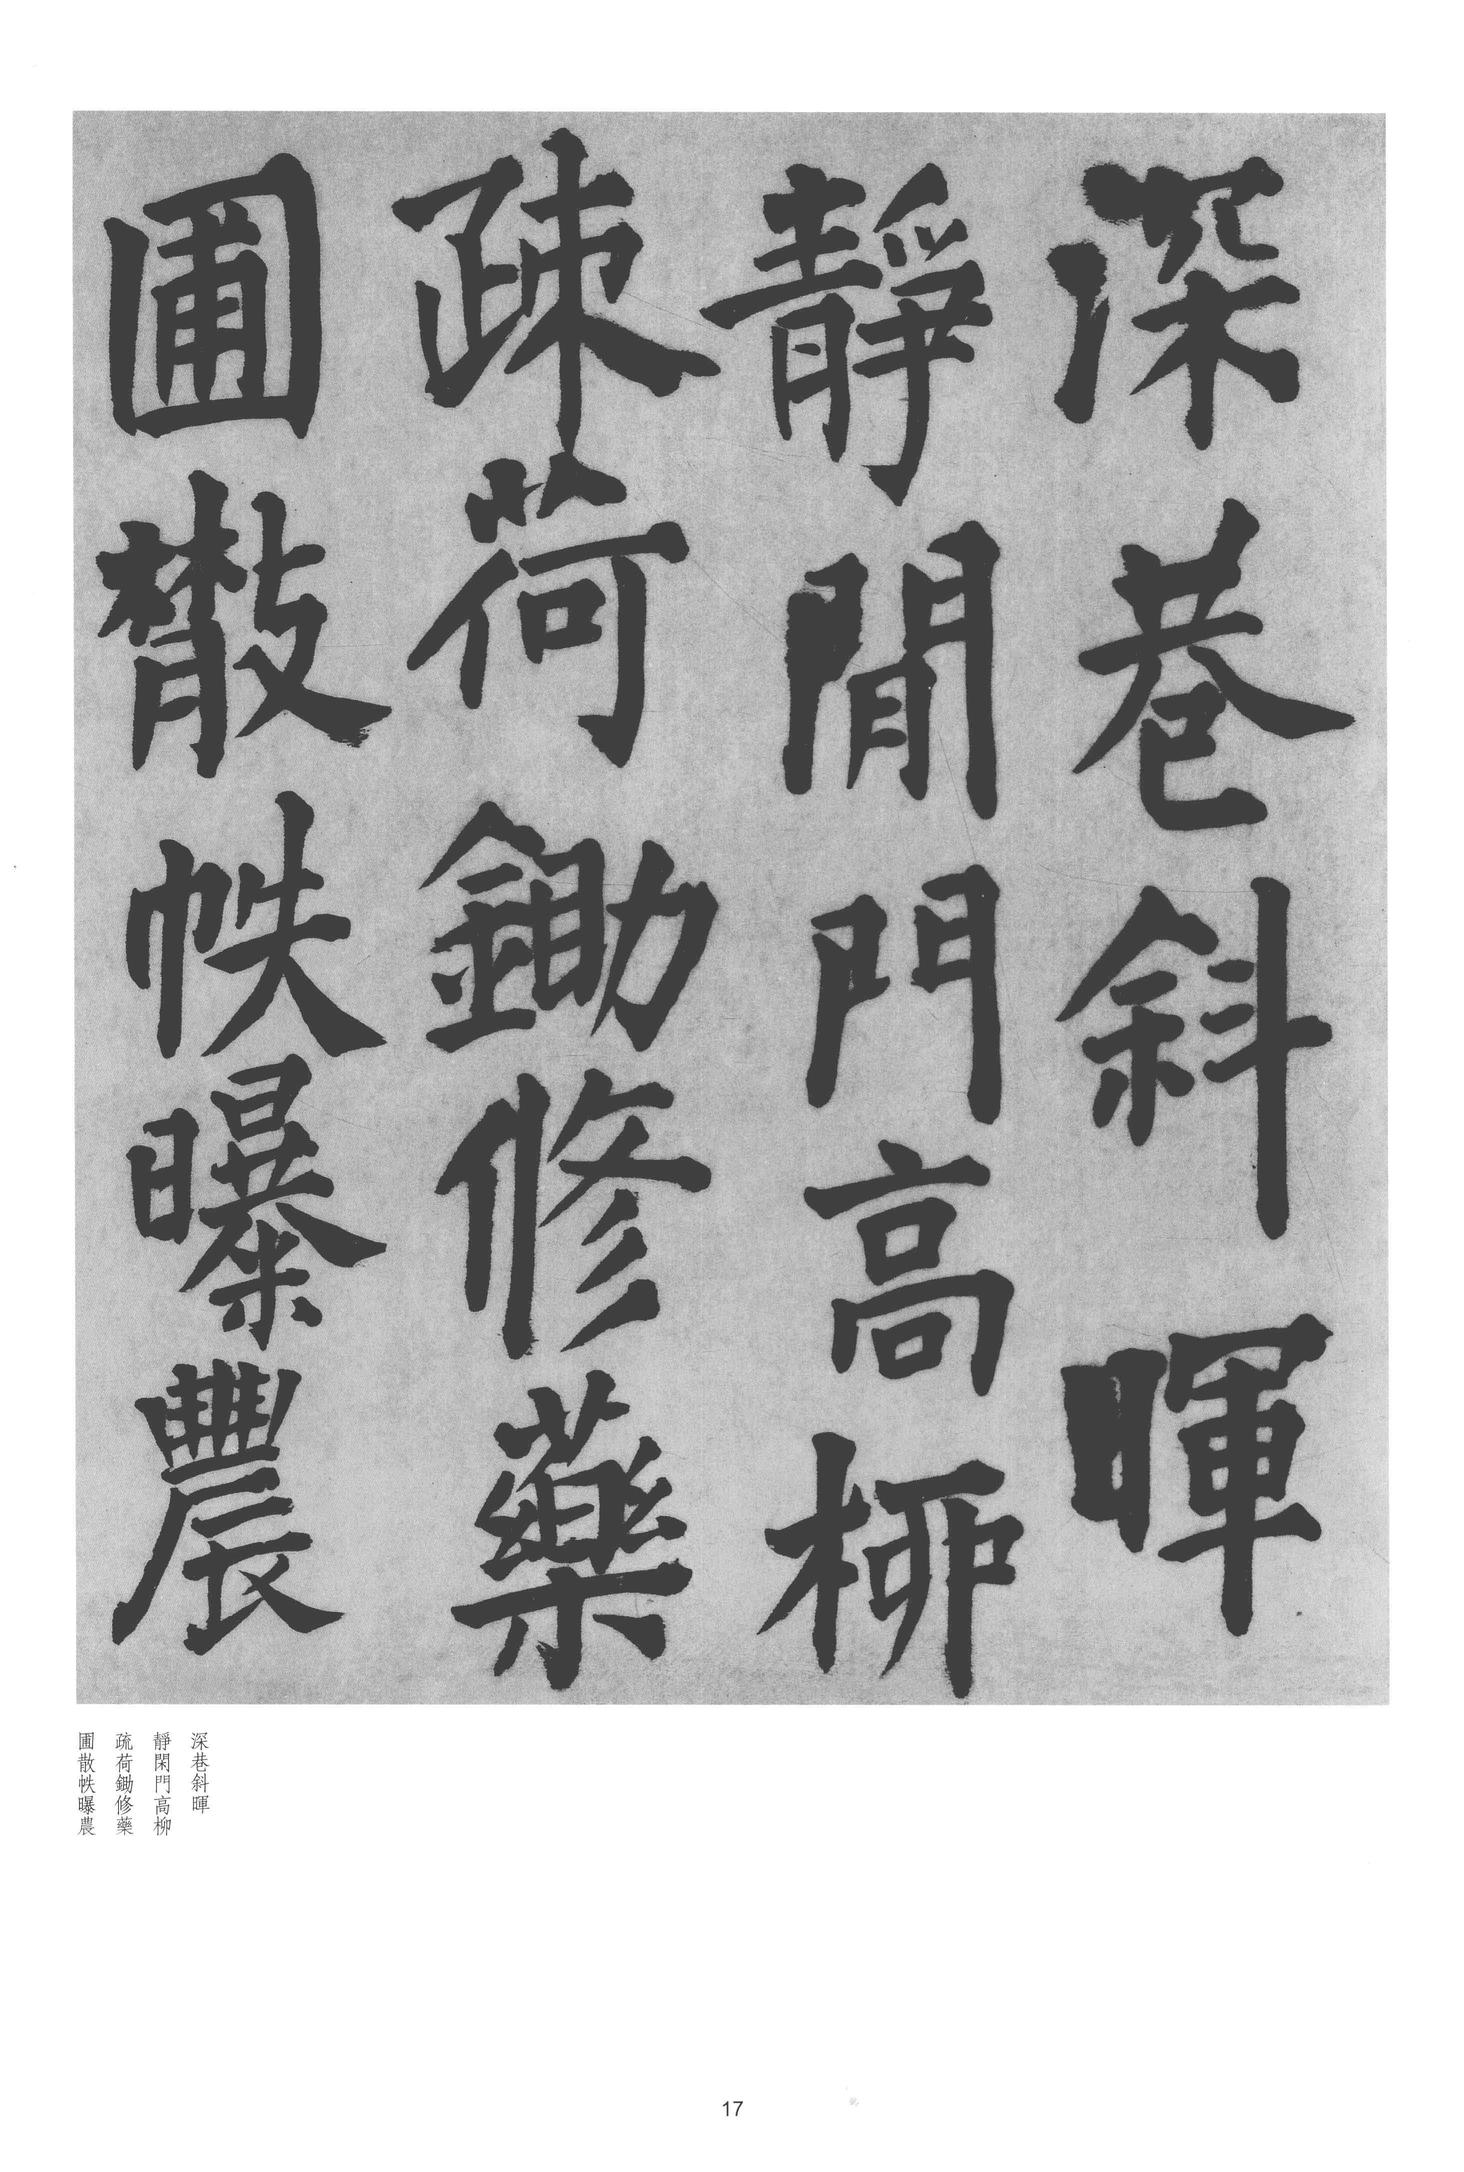 深巷斜暉
靜閒門高柳
疎荷鋤修藥
圃散帙曝農
深巷斜暉
靜閑門高柳
疏荷鋤修藥
圃散帙曝農
17